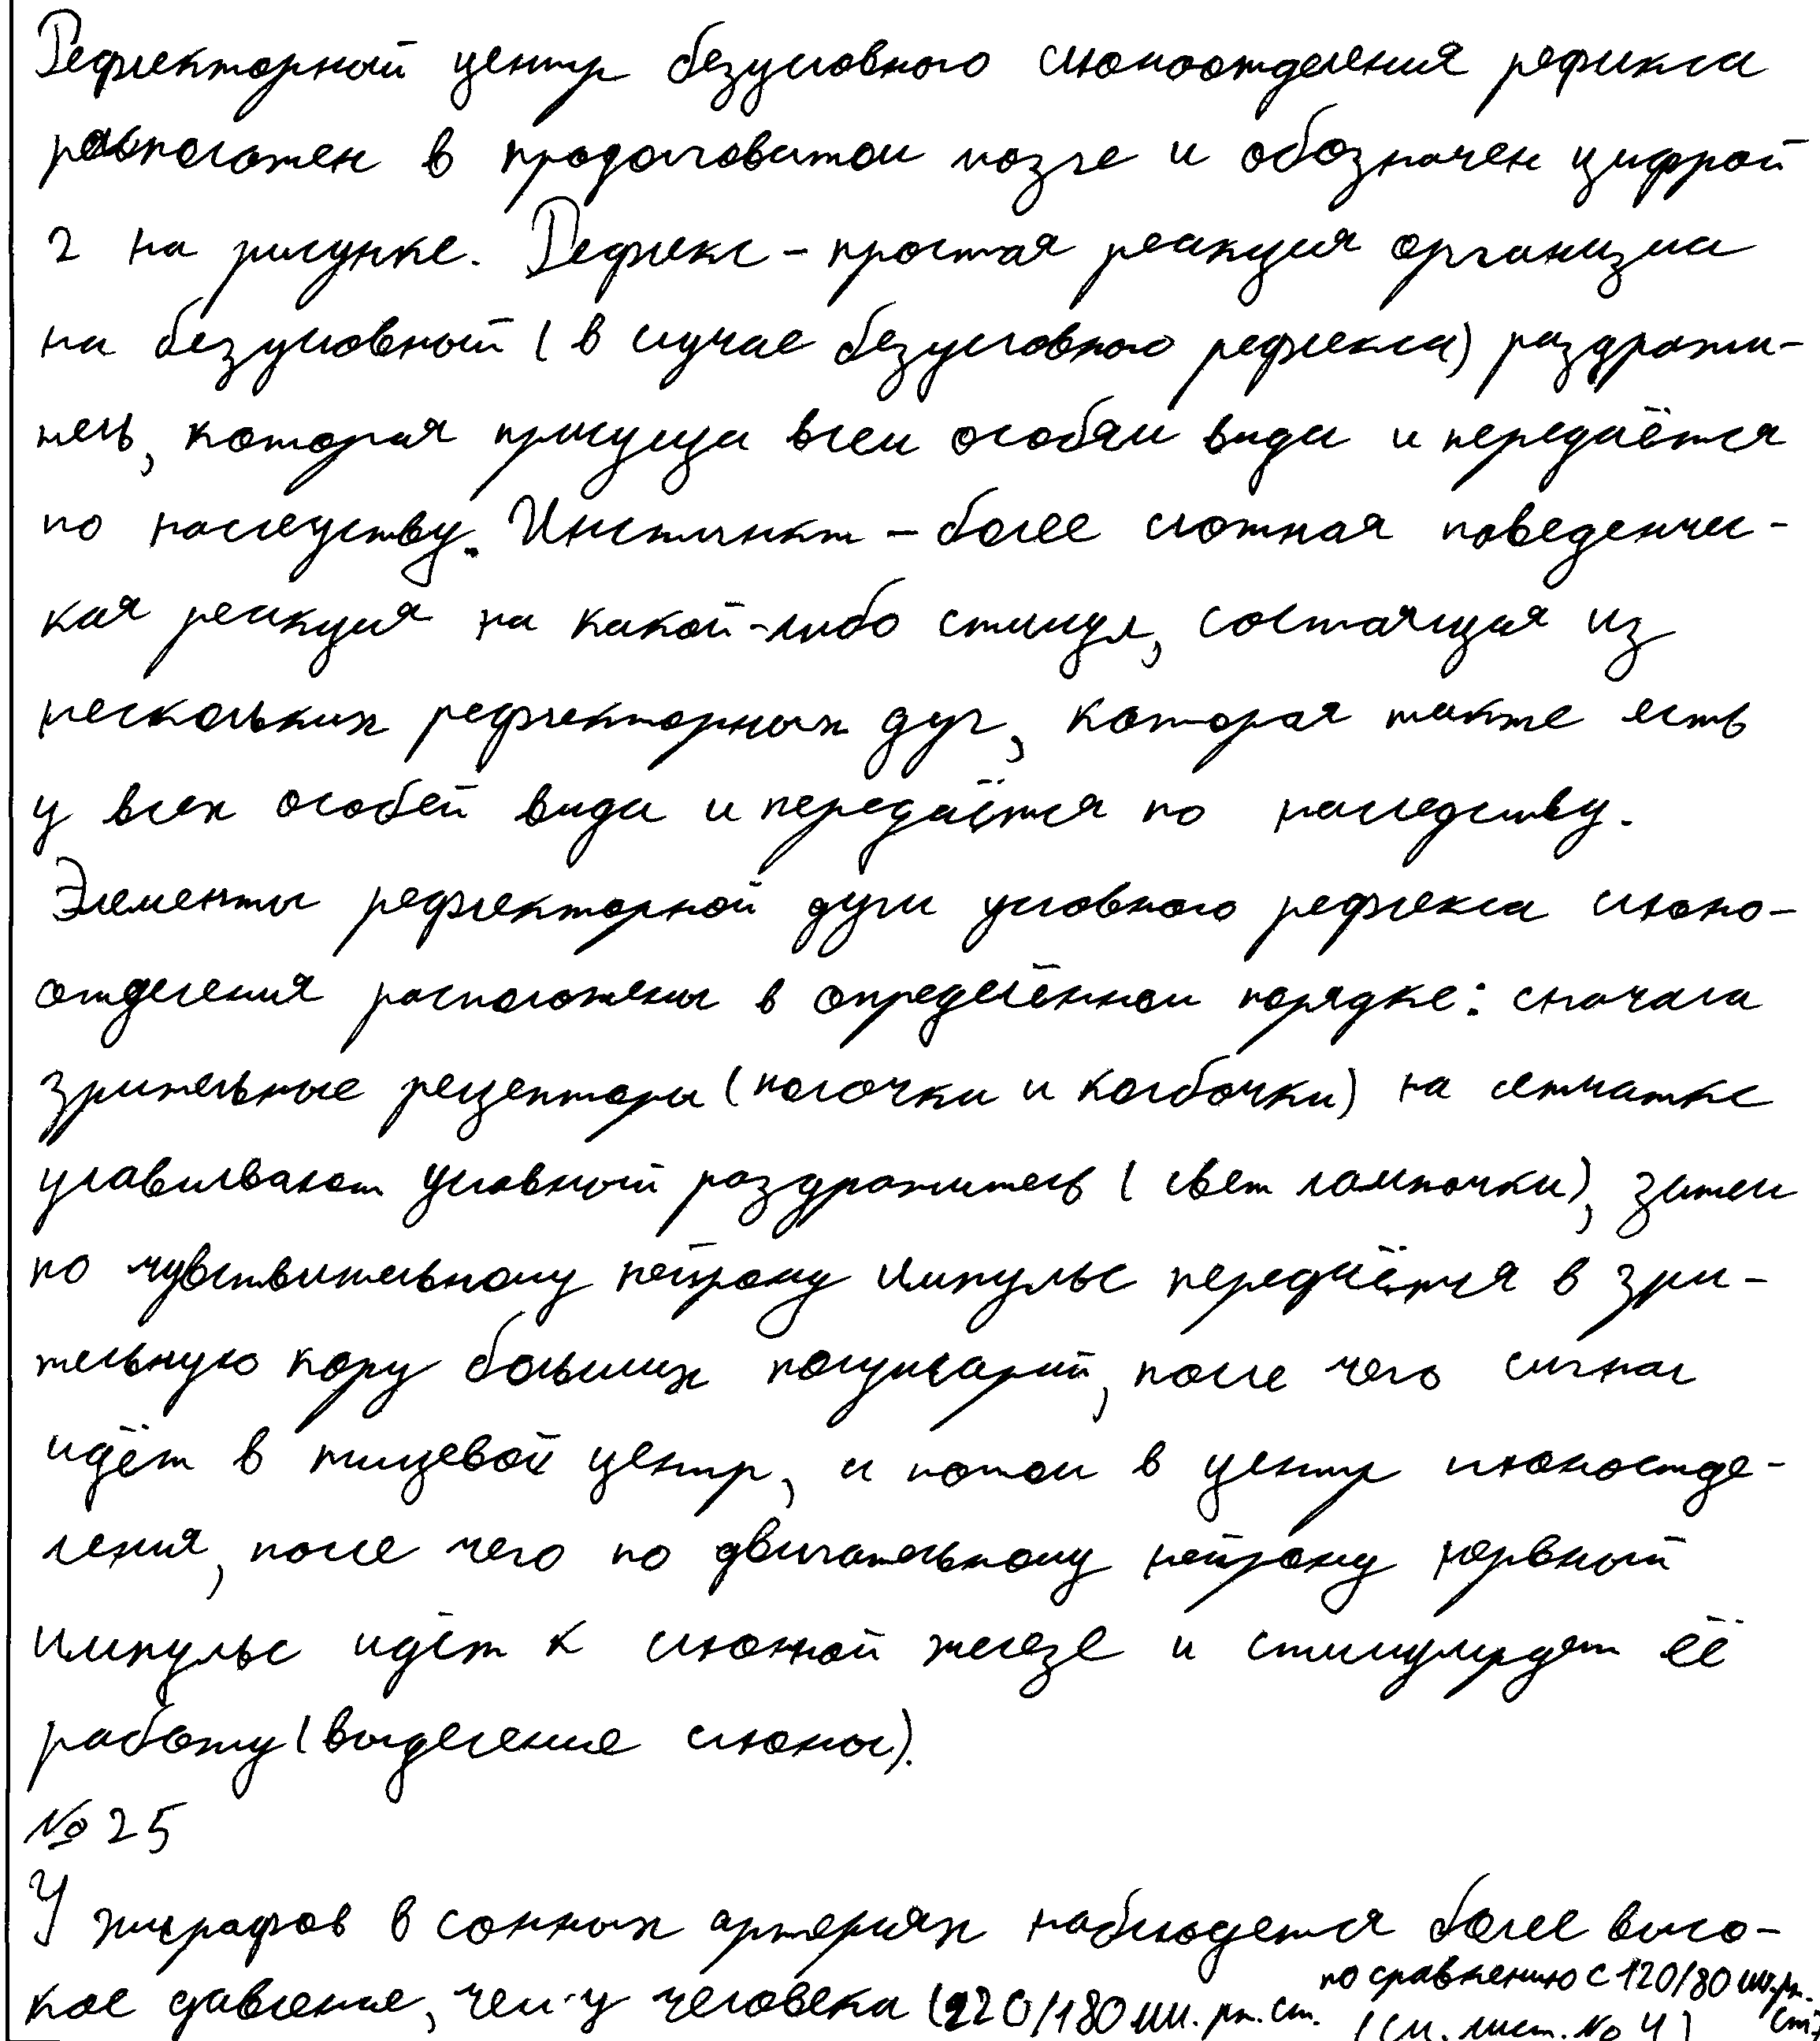 Рефлекторный центр безусловного слюноотделения рефлекса
расположен в продолговатом мозге и обозначен цифрой
2 на рисунке. Рефлекс – простая реакция организма
на безусловный (в случае безусловного рефлекса) раздражи-
тель, которая присуща всем особям вида и передаётся
по наследству. Инстинкт – более сложная поведенчес-
кая реакция на какой-либо стимул, состоящая из
нескольких рефлекторных дуг, которая также есть
у всех особей вида и передаётся по наследству.
Элементы рефлекторной дуги условного рефлекса слюно-
отделения расположены в определённом порядке: сначала
зрительные рецепторы (палочки и колбочки) на сетчатке
улавливают условный раздражитель (свет лампочки), затем
по чувствительному нейрону импульс передаётся в зри-
тельную кору больших полушарий, после чего сигнал
идёт в пищевой центр, и потом в центр слюноотде-
ления, после чего по двигательному нейрону нервный
импульс идёт к слюнной железе и стимулирует её
работу (выделение слюны).
№ 25
У жирафов в сонных артериях наблюдется более высо-
кое давление, чем у человека (220/180 мм. рт. ст. по сравнению с 120/80 мм. рт. ст)
(см. лист. № 4)